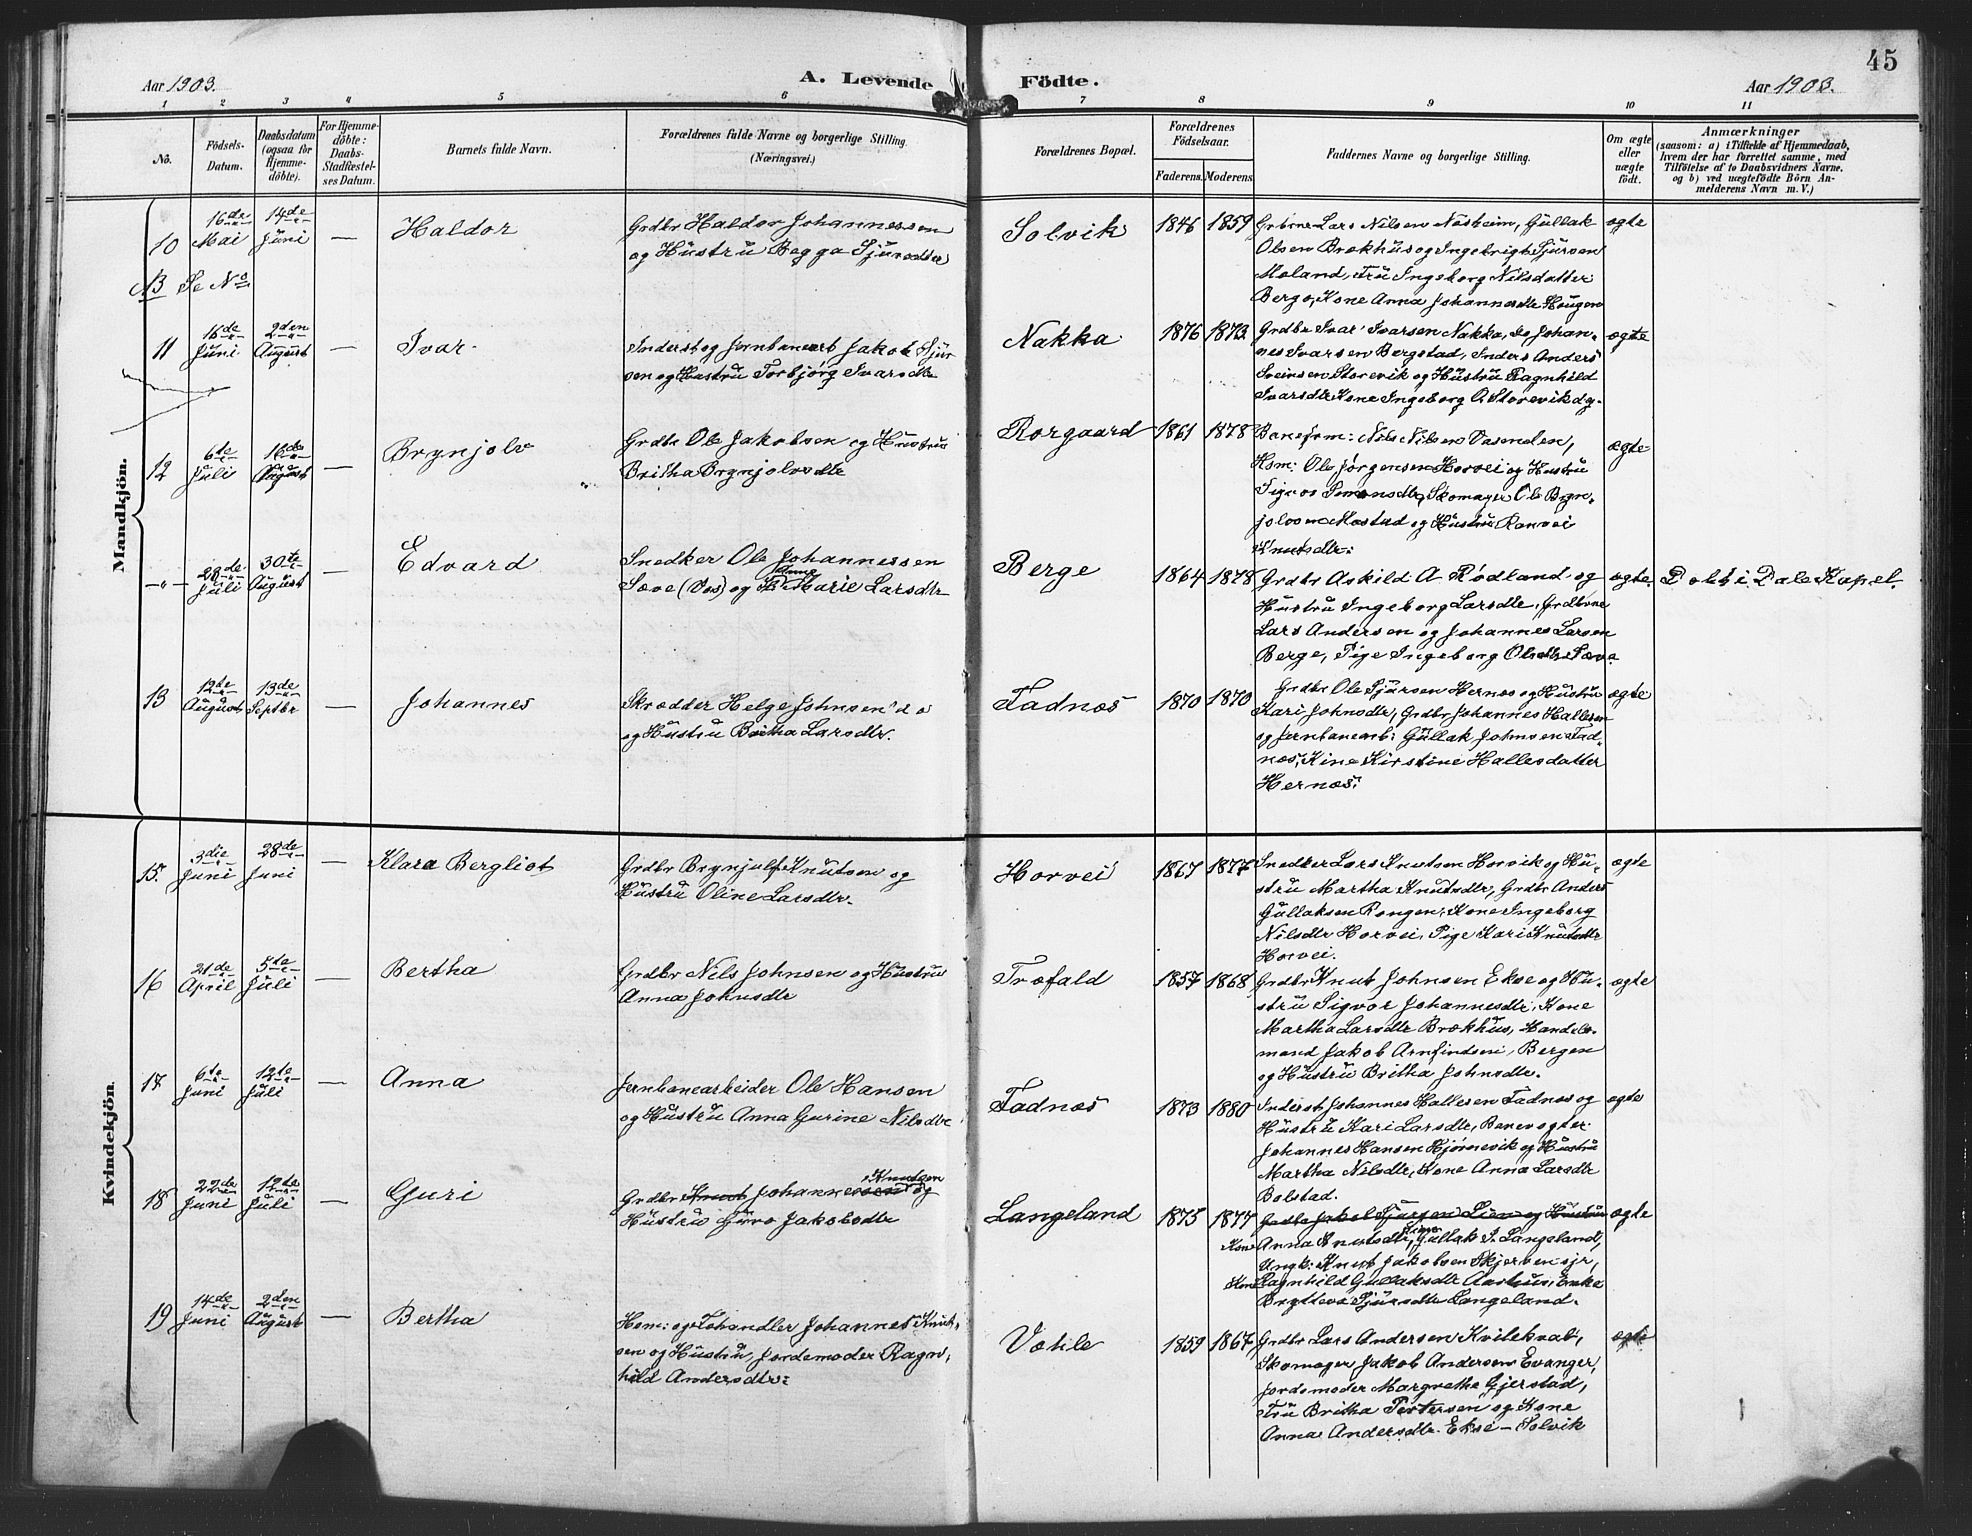 45
Aar 1903.
A. Levende Födte.
Aar 1903.
1 2 3 4 5 6 7 8 9 10 11
No.
Födsels-
Datum.
Daabsdatum
(ogsaa for
Hjemme-
döbte).
For Hjemme-
döbte:
Daabs-
Stadfæstel-
ses Datum.
Barnets fulde Navn.
Forældrenes fulde Navne og borgerlige Stilling.
(Næringsvei.)
Forældrenes Bopæl.
Forældrenes
Födselsaar.
Faderens. Moderens.
Faddernes Navne og borgerlige Stilling.
Om ægte
eller
uægte
födt.
Anmærkninger
(saasom: a) i Tilfælde af Hjemmedaab,
hvem der har forrettet samme, med
Tilföielse af to Daabsvidners Navne.
og b) ved uægtefödte Börn An-
melderens Navn m. V.)
Mandkjön.
10 16de Mai 14de Juni — Haldor
Grdbr Haldor Johannessen
og Hustru Bagga Sjursdtr
Solvik 1846 1859
Grbrne Lars Nilsen Næsheim, Gullak
Olsen Brækhus og Ingebrigt Sjursen
Moland, Fru Ingeborg Nilsdatter
Berge, Kone Anna Johannesdtr Hougen
ægte
NB Se No
11 16de Juni 2den August — Ivar
Inderst og Jernbanearb Jakob Sjur
sen og Hustru Torbjørg Ivarsdtr
Nakka 1876 1873
Grdbr Ivar Ivarsen Nakka, Do Johan-
nes Ivarsen Bergstad, Inders Anders
Sveinsen Storevik og Hustru Ragnhild
Ivarsdtr Kone Ingeborg O. Storevik
ægte
12 6te Juli 16de August — Brynjolv
Grdbr Ole Jakobsen og Hustru
Britha Brynjolvsdtr
Rørgaard 1861 1878
Baneform: Nils Nilsen Vasenden,
Hsm: Ole Jørgensen Horvei og Hustru
Skomager Ole Bryn-
jolvsen Mæstad og Hustru Ranvei
Knutsdtr.
ægte
—"— 28de Juli 30te August — Edvard
Snedker Ole Johannessen
Sæve (Vos) og Anna Marie Larsdtr
Berge 1864 1878
Grdbr Askild A Rødland og
Hustru Ingeborg Larsdtr, Grdbrne
Lars Andersen og Johannes Larsen
Berge, Pige Ingeborg Olsdtr Sæve
ægte. Døbt i Dale Kapel.
13 12te August 13de Septbr — Johannes
Skrædder Helge Johnsen
og Hustru Britha Larsdtr.
Fadnæs 1870 1870
Grdbr Ole Sjursen Hernæs og Hustru
Kari Johnsdtr, Grdbr Johannes Hallesen
og Jernbanearb: Gullak Johnsen Fad-
næs, Kirstine Hallesdatter
Hernæs.
ægte
Kvindekjön.
15. 3die Juni 28de Juni — Klara Bergliot
Grdbr Brynjulf Knutsen og
Hustru Oline Larsdtr.
Horvei 1867 1877
Snedker Lars Knutsen Horvik og Hu-
stru Martha Knutsdtr, Grdbr Anders
Gullaksen Rongen, Kone Ingeborg
Nilsdtr Horvei, Pige Kari Knutsdtr
Horvei.
ægte
16 21de April 5te Juli — Bertha
Grdbr Nils Johnsen og Hustru
Anna Johnsdtr
Træfald 1857 1868
Grdbr Knut Johnsen Ekse og Hu-
stru Sigvor Johannesdtr, Kone
Martha Larsdtr Brækhus, Handels-
mand Jakob Arnfindsen, Bergen
og Hustru Britha Johnsdtr.
ægte
17 6te Juni 12te Juli — Anna
Jernbanearbeider Ole Hansen
og Hustru Anna Gurine Nilsdtr
Fadnæs 1873 1880
Inderst Johannes Hallesen Fadnæs og
Hustru Kari Larsdtr, Banevogter
Johannes Hansen Hjørnevik og Hustru
Martha Nilsdtr, Kone Anna Larsdtr
Bolstad.
ægte
18 22de Juni 12te Juli — Guri
Grdbr Knut Johannessen Knudsen og
Hustru Guro Jakobsdtr
Langeland 1875 1877
Grdbr Jakob Sjursen Lien og Hustru
Kone Anna Knutsdtr, Gullak S. Langeland,
Ungk: Knut Jakobsen Skjerven
Kone Ragnhild Gullaksdtr Aarhus, Enke
Brytteva Sjursdtr Langeland.
ægte
19 14de Juni 2den August — Bertha
Hsm: og Johannes Knut-
sen og Hustru, Jordemoder Ragn-
hild Andersdtr.
Væhle 1859 1867
Grdbr Lars Andersen Kvilekval,
Skomager Jakob Andersen Evanger,
Jordemoder Margrethe Gjerstad,
Fru Britha Pettersen og Kone
Anna Andersdtr. Ekse — Solvik
ægte